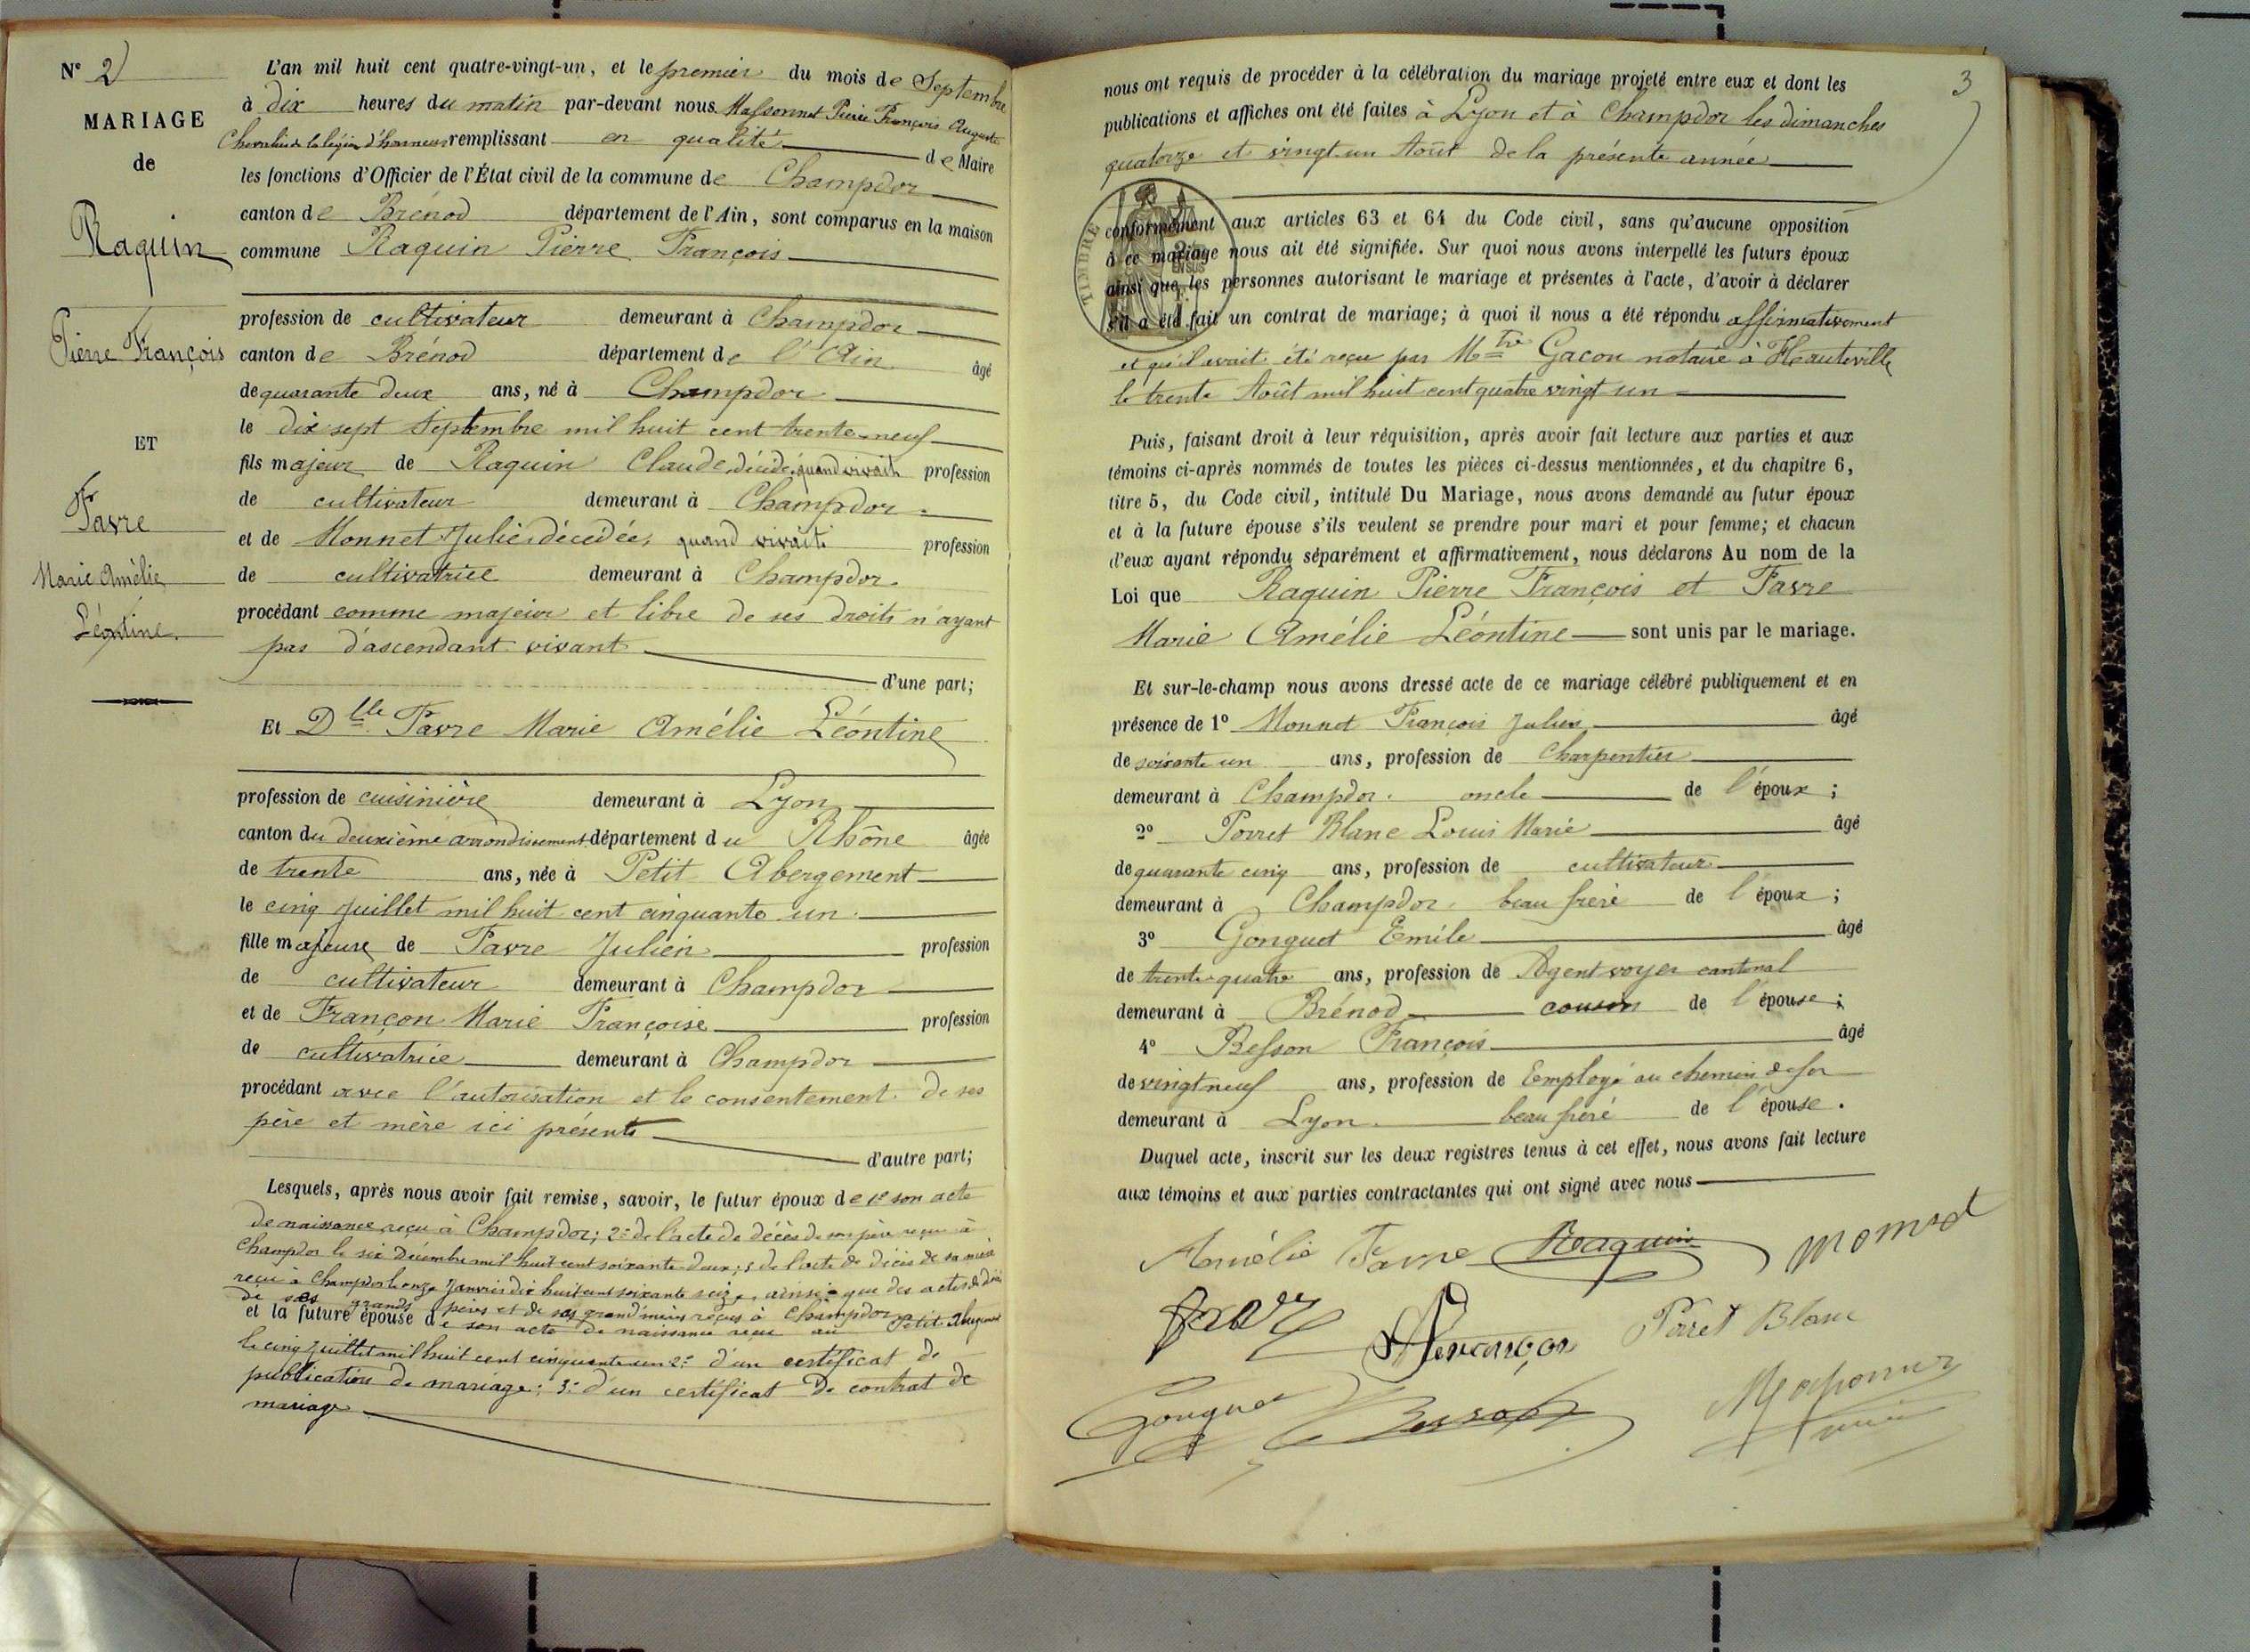 N° 2
MARIAGE
de
Raquin
Pierre François
ET
Favre
Marie Amélie
Léontine.
L'an mil huit cent quatre-vingt-un, et le premier du mois de Septembre
à dix heures du matin par-devant nous Massonnet Pierre François Auguste
Chevalier de la légion d'honneur remplissant en qualité de Maire
les fonctions d'Officier de l'État civil de la commune de Champdor
canton de Brénod département de l'Ain, sont comparus en la maison
commune Raquin Pierre François
profession de cultivateur demeurant à Champdor
canton de Brénod département de l'Ain âgé
de quarante deux ans, né à Champdor
le dix sept Septembre mil huit cent trente-neuf
fils majeur de Raquin Claude, décédé, quand vivait profession
de cultivateur demeurant à Champdor
et de Monnet Julie décédée, quand vivait profession
de cultivatrice demeurant à Champdor.
procédant comme majeur et libre de ses droits n'ayant
pas d'ascendant vivant
d'une part;
Et Dlle Favre Marie Amélie Léontine
profession de cuisinière demeurant à Lyon
canton du deuxième arrondissement département du Rhône âgée
de trente ans, née à Petit Abergement
le cinq Juillet mil huit cent cinquante un
fille majeure de Favre Julien profession
de cultivateur demeurant à Champdor
et de Françon Marie Françoise profession
de cultivatrice demeurant à Champdor
procédant avec l'autorisation et le consentement de ses
père et mère ici présents
d'autre part;
Lesquels, après nous avoir fait remise, savoir, le futur époux de 1° son acte
de naissance reçu à Champdor; 2° de l'acte de décès de son père reçu à
Champdor le six Décembre mil huit cent soixante deux; 3 de l'acte de décès de sa mère
reçu à Champdor le onze Janvier dix huit cent soixante seize, ainsi que des actes de décès
de ses grands pères et de ses grand'mères reçus à Champdor
et la future épouse de son acte de naissance reçu au Petit Abergement
le cinq Juillet mil huit cent cinquante un 2° d'un certificat de
publication de mariage; 3° d'un certificat de contrat de
mariage
3
nous ont requis de procéder à la célébration du mariage projeté entre eux et dont les
publications et affiches ont été faites à Lyon et à Champdor les dimanches
quatorze et vingt-un Août de la présente année
TIMBRE
conformément aux articles 63 et 64 du Code civil, sans qu'aucune opposition
à ce mariage nous ait été signifiée. Sur quoi nous avons interpellé les futurs époux
ainsi que les personnes autorisant le mariage et présentes à l'acte, d'avoir à déclarer
s'il a été fait un contrat de mariage; à quoi il nous a été répondu affirmativement
et qu'il avait été reçu par Mtre Gacon notaire à Hauteville
le trente Août mil huit cent quatre vingt un
Puis, faisant droit à leur réquisition, après avoir fait lecture aux parties et aux
témoins ci-après nommés de toutes les pièces ci-dessus mentionnées, et du chapitre 6,
titre 5, du Code civil, intitulé Du Mariage, nous avons demandé au futur époux
et à la future épouse s'ils veulent se prendre pour mari et pour femme; et chacun
d'eux ayant répondu séparément et affirmativement, nous déclarons Au nom de la
Loi que Raquin Pierre François et Favre
Marie Amélie Léontine sont unis par le mariage.
Et sur-le-champ nous avons dressé acte de ce mariage célébré publiquement et en
présence de 1° Monnet François Julien âgé
de soixante un ans, profession de Charpentier
demeurant à Champdor. oncle de l'époux;
2° Porret Blanc Louis Marie âgé
de quarante cinq ans, profession de cultivateur
demeurant à Champdor. beau frère de l'époux;
3° Gonguet Emile âgé
de trente-quatre ans, profession de Agent voyer cantonal
demeurant à Brénod cousin de l'épouse;
4° Besson François âgé
de vingt neuf ans, profession de Employé au chemin de fer
demeurant à Lyon. beau frère de l'épouse.
Duquel acte, inscrit sur les deux registres tenus à cet effet, nous avons fait lecture
aux témoins et aux parties contractantes qui ont signé avec nous
Amélie Favre Raquin Monnet
Porret Blanc
Gonguet Besson